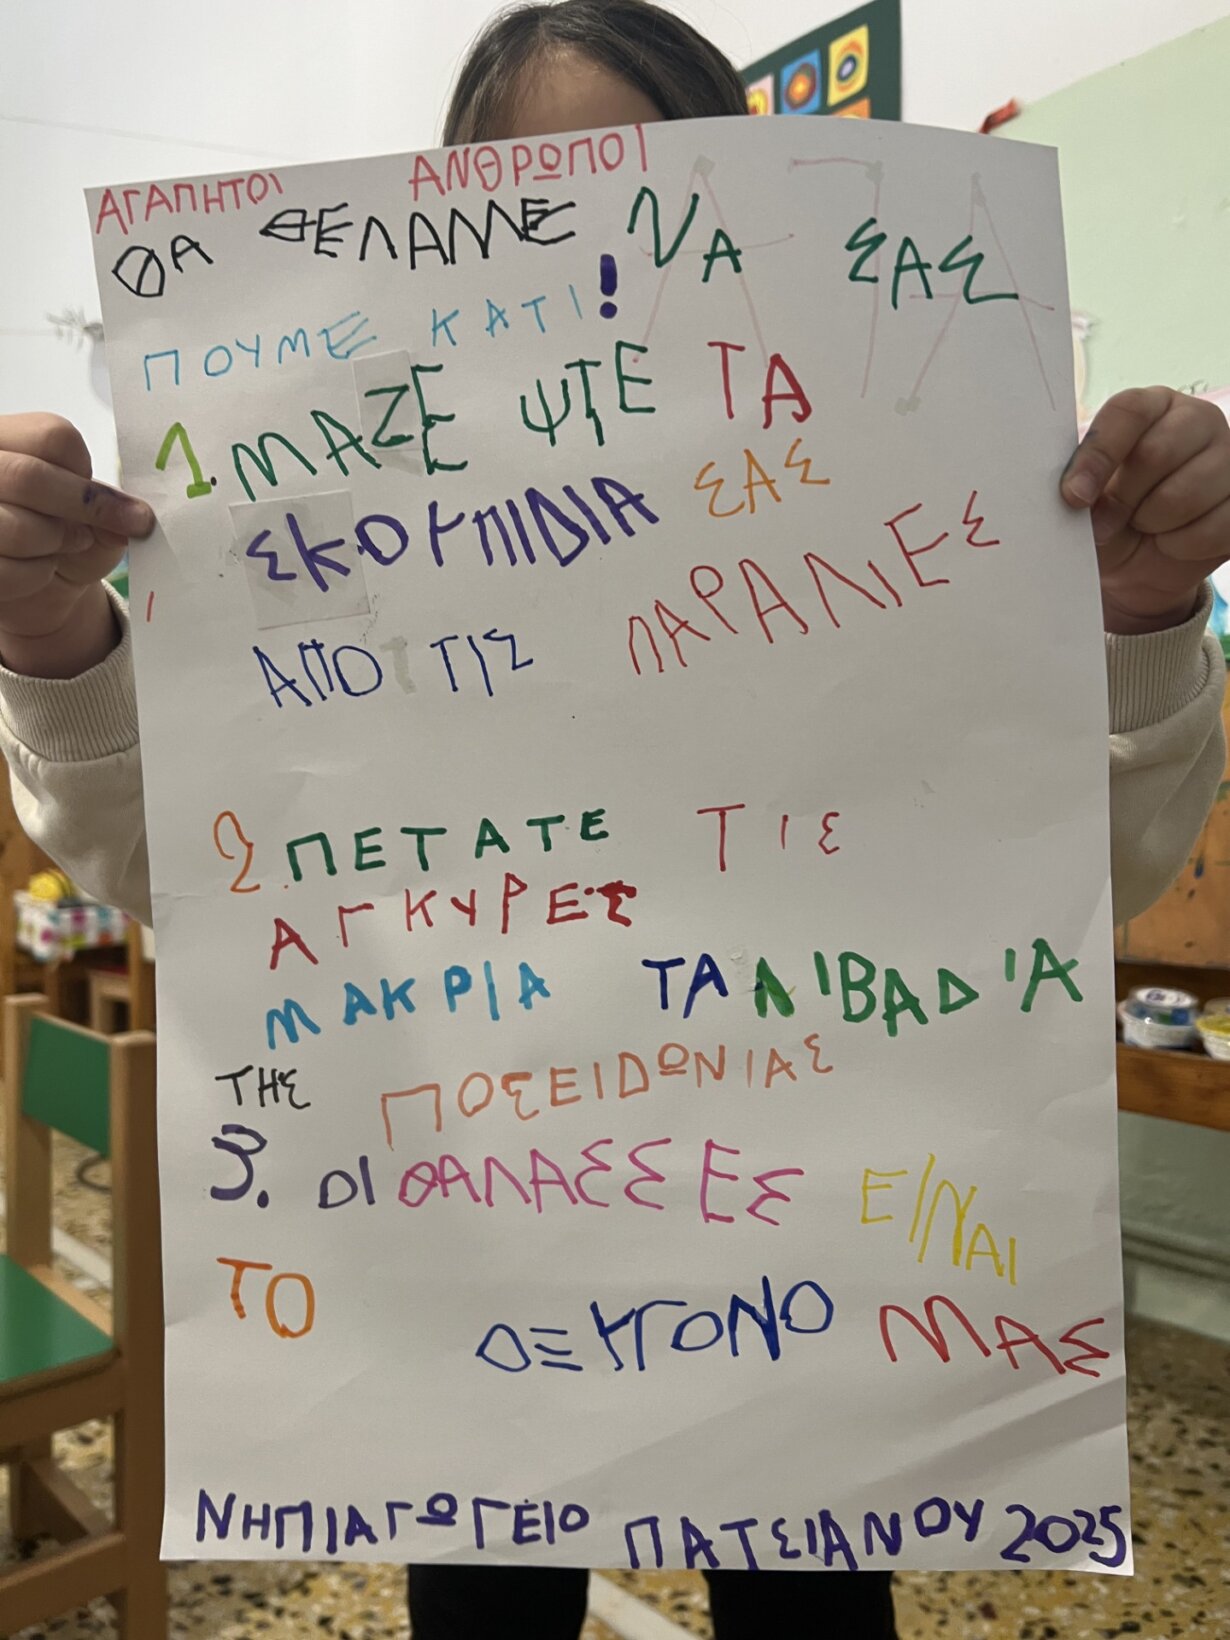 ΑΓΑΠΗΤΟΙ ΑΝΘΡΩΠΟΙ
ΘΑ ΘΕΛΑΜΕ ΝΑ ΣΑΣ
ΠΟΥΜΕ ΚΑΤΙ!
1. ΜΑΖΕΨΤΕ ΤΑ
ΣΚΟΥΠΙΔΙΑ ΣΑΣ
ΑΠΟ ΤΙΣ ΠΑΡΑΛΙΕΣ
2. ΠΕΤΑΤΕ ΤΙΣ
ΑΓΚΥΡΕΣ
ΜΑΚΡΙΑ ΤΑ ΛΙΒΑΔΙΑ
ΤΗΣ ΠΟΣΕΙΔΩΝΙΑΣ
3. ΟΙ ΘΑΛΑΣΣΕΣ ΕΙΝΑΙ
ΤΟ ΟΞΥΓΟΝΟ ΜΑΣ
ΝΗΠΙΑΓΩΓΕΙΟ ΠΑΤΣΙΑΝΟΥ 2025